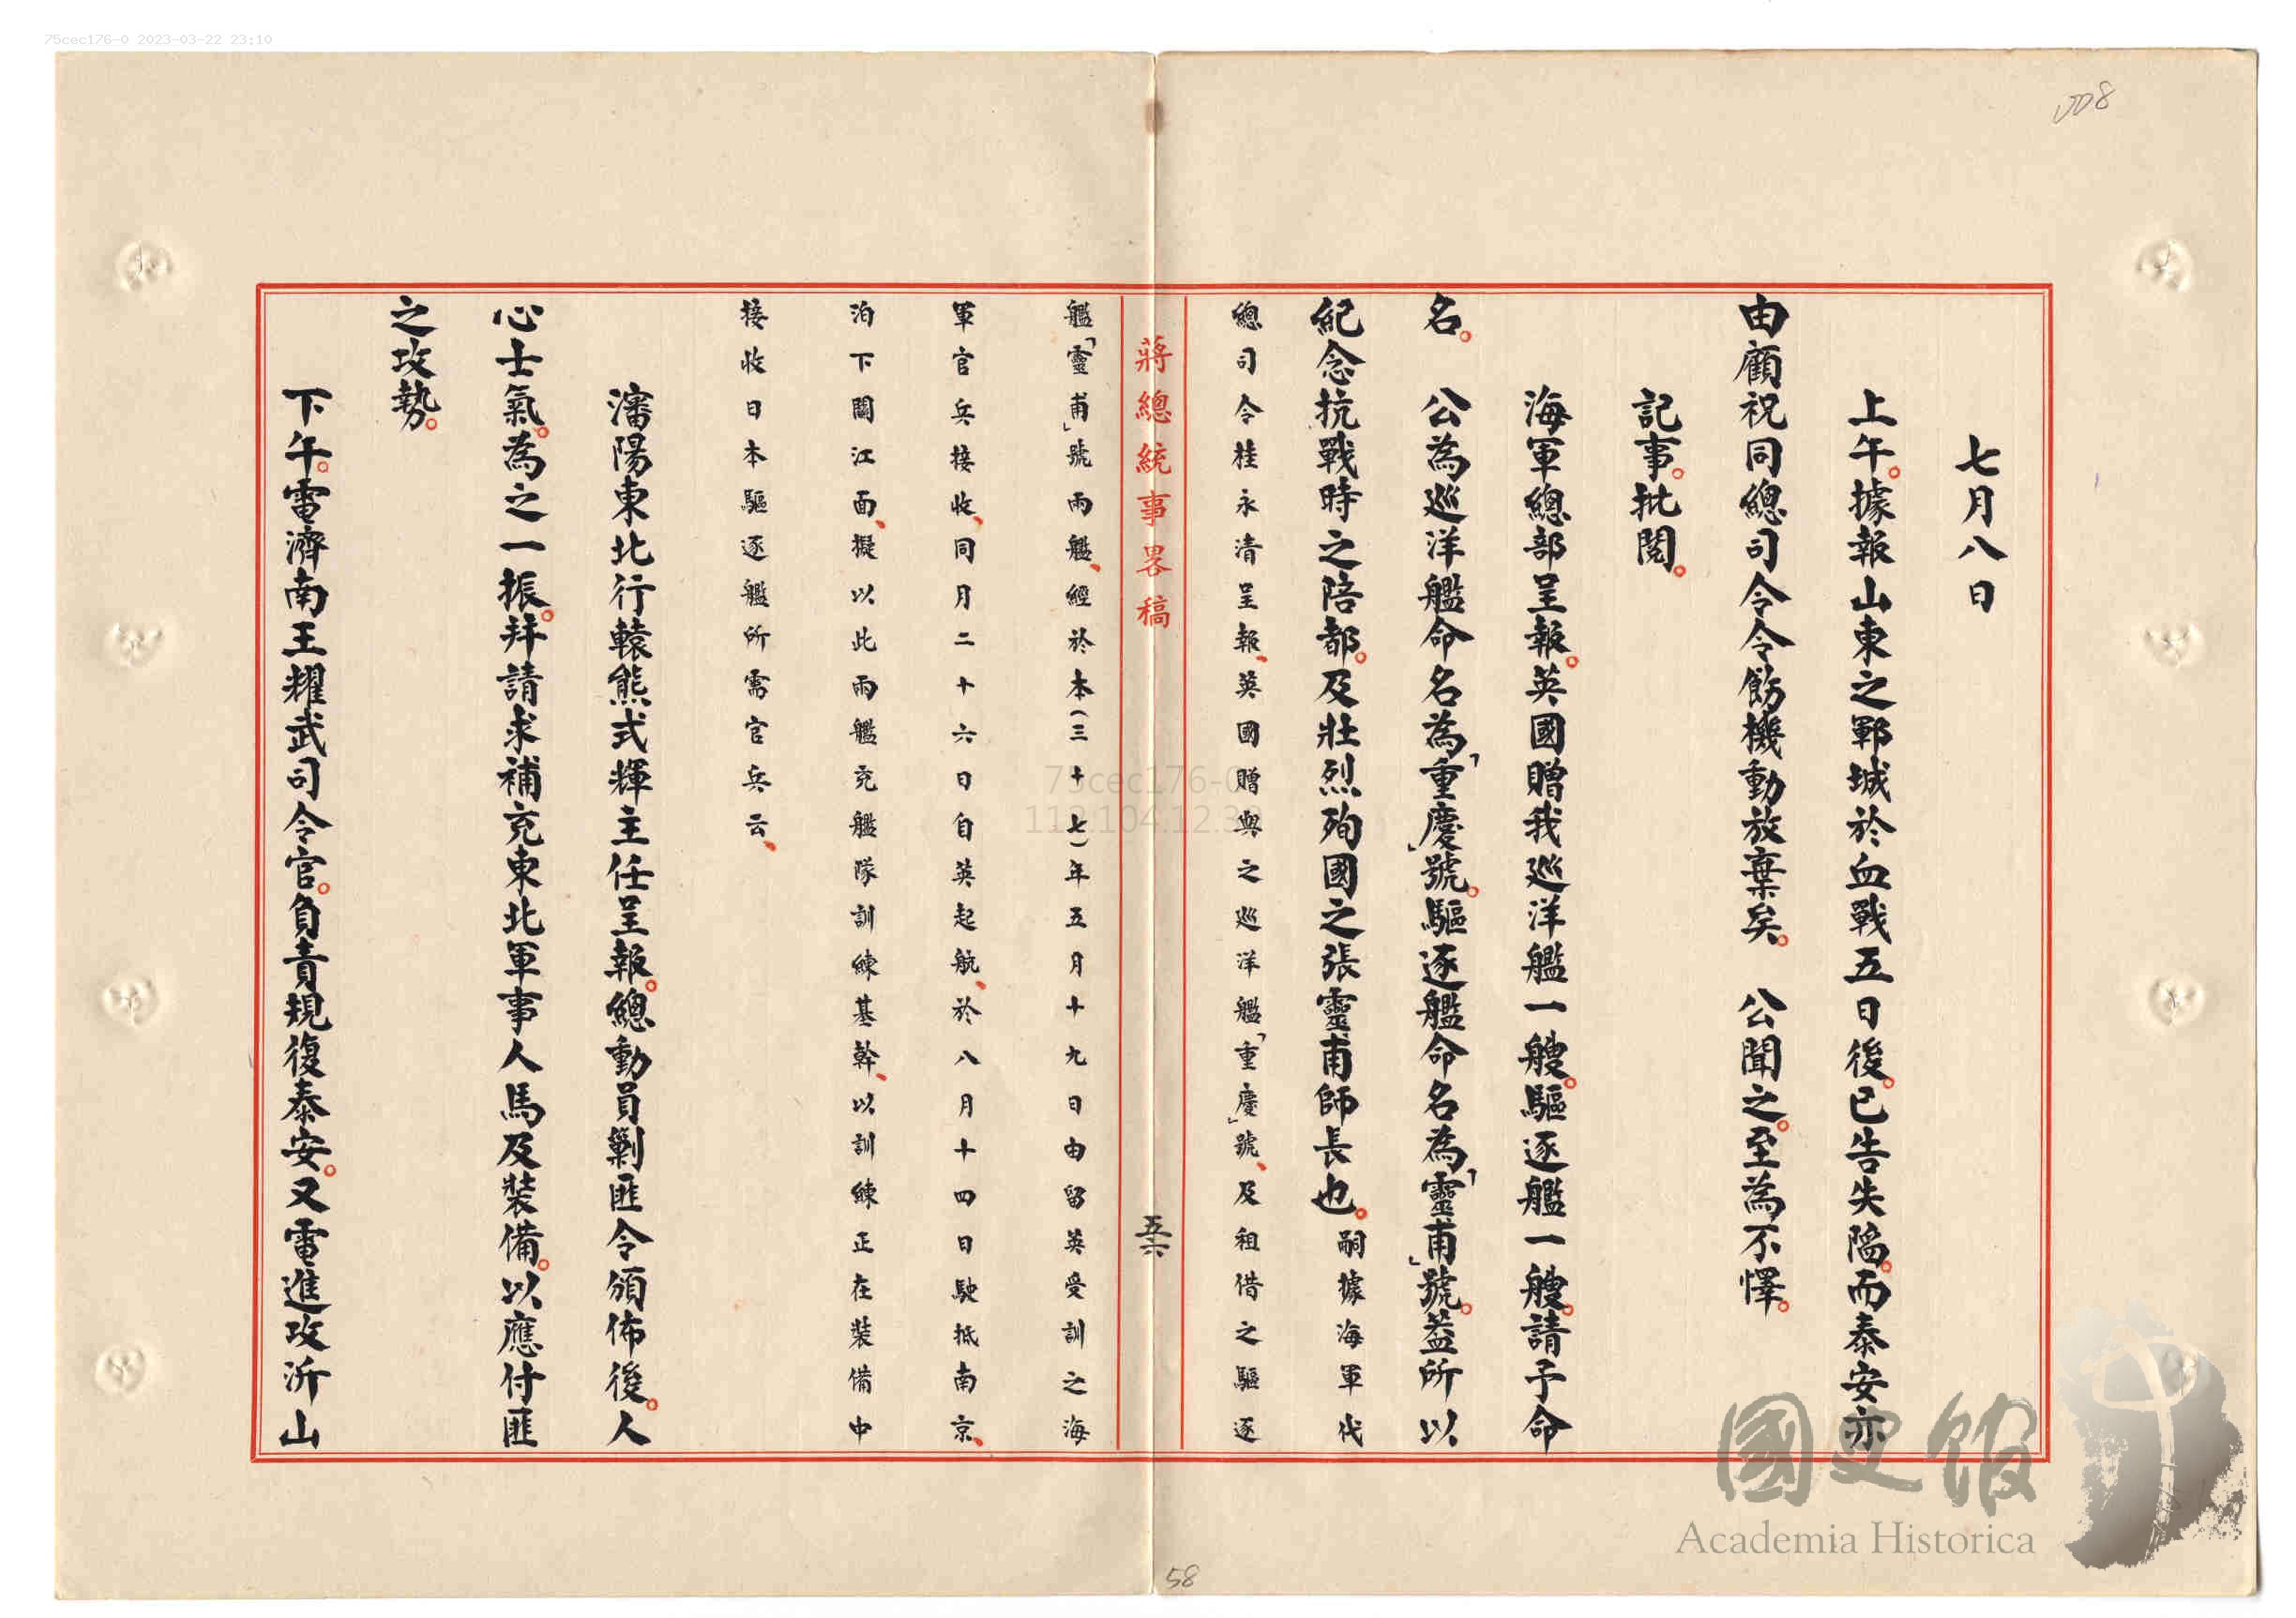 75cec176-0 2023-03-22 23:10
008
七月八日
上午。據報山東之鄆城於血戰五日後。已告失陷。而泰安亦
由顧祝同總司令令飭機動放棄矣。　公聞之。至為不懌。
記事。批閱。
海軍總部呈報。英國贈我巡洋艦一艘。驅逐艦一艘。請予命
名。　公為巡洋艦命名為「重慶」號。驅逐艦命名為「靈甫」號。蓋所以
紀念抗戰時之陪都。及壯烈殉國之張靈甫師長也。嗣據海軍代
總司令桂永清呈報、英國贈與之巡洋艦「重慶」號、及租借之驅逐
蔣總統事畧稿
五六
艦「靈甫」號兩艦、經於本(三十七)年五月十九日由留英受訓之海
軍官兵接收、同月二十六日自英起航、於八月十四日駛抵南京、
泊下關江面、擬以此兩艦充艦隊訓練基幹、以訓練正在裝備中
接收日本驅逐艦所需官兵云、
瀋陽東北行轅熊式輝主任呈報。總動員剿匪令頒佈後。人
心士氣。為之一振。并請求補充東北軍事人馬及裝備。以應付匪
之攻勢。
下午。電濟南王耀武司令官。負責規復泰安。又電進攻沂山
58
75cec176-0
112.104.12.39
國史館
Academia Historica